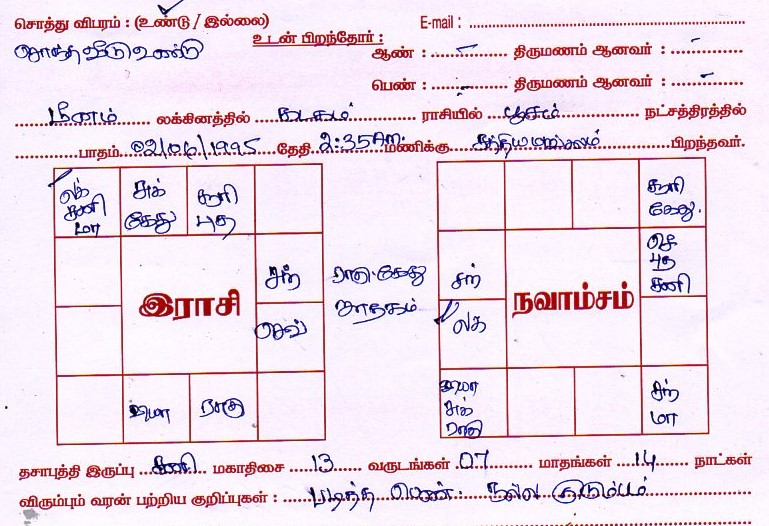 சொத்து விபரம் : (உண்டு / இல்லை) E-mail :
சொந்த வீடு உண்டு உடன் பிறந்தோர் : ஆண் : – திருமணம் ஆனவர் : –
பெண் : – திருமணம் ஆனவர் : –
மீனம் லக்கினத்தில் கடகம் ராசியில் பூசம் நட்சத்திரத்தில்
பாதம் 02/06/1995 தேதி 2:35 AM மணிக்கு சத்தியமங்கலம் பிறந்தவர்.
லக் சனி மா
சுக் கேது
சூரி புத
சந்
செவ்
ராகு
இராசி
ராகு கேது
ஜாதகம்
சூரி கேது
செ புத சனி
சந்
லக
சுக் ராகு
மா
நவாம்சம்
தசாபுத்தி இருப்பு சனி மகாதிசை 13 வருடங்கள் 07 மாதங்கள் 14 நாட்கள்
விரும்பும் வரன் பற்றிய குறிப்புகள் : படித்த பெண். நல்ல குடும்பம்